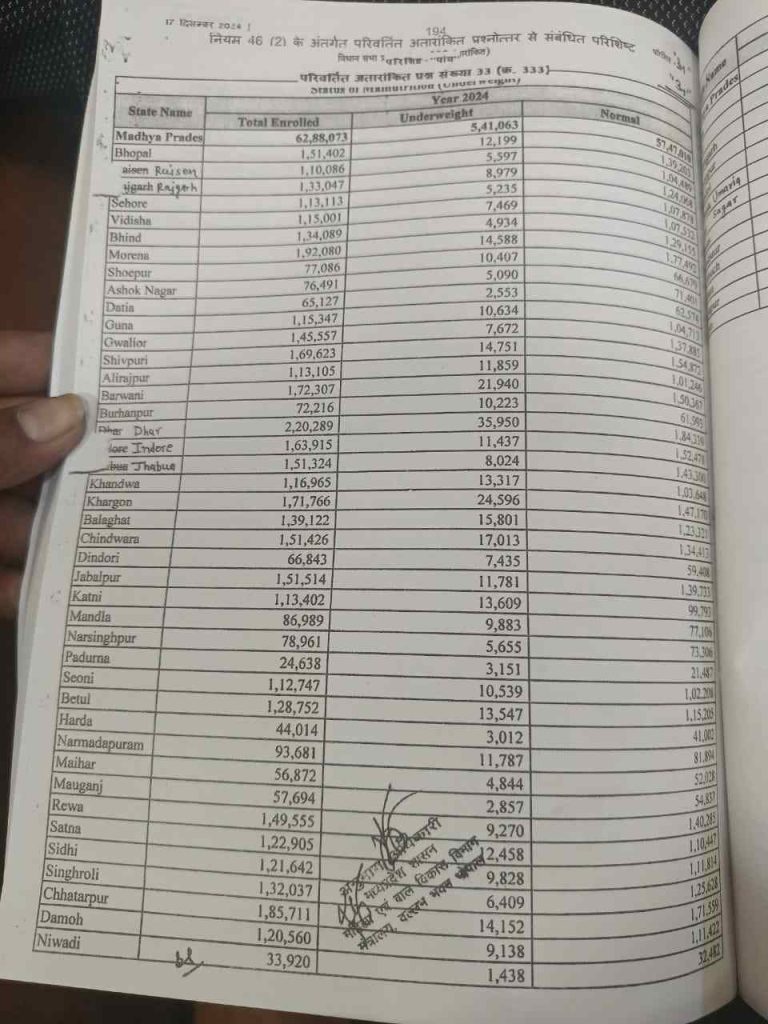 17 दिसम्बर 2024
194
नियम 46 (2) के अंतर्गत परिवर्तित अतारांकित प्रश्नोत्तर से संबंधित परिशिष्ट
विधान सभा परिशिष्ट "पांच"
परिवर्तित अतारांकित प्रश्न संख्या 33 (क. 333)
Status of Malnutrition (Underweight)
State Name Year 2024
Total Enrolled Underweight Normal
Madhya Prades 62,88,073 5,41,063 57,47,010
Bhopal 1,51,402 12,199 1,39,203
aisen Raisen 1,10,086 5,597 1,04,489
ajgarh Rajgarh 1,33,047 8,979 1,24,068
Sehore 1,13,113 5,235 1,07,878
Vidisha 1,15,001 7,469 1,07,532
Bhind 1,34,089 4,934 1,29,155
Morena 1,92,080 14,588 1,77,492
Shoepur 77,086 10,407 66,679
Ashok Nagar 76,491 5,090 71,401
Datia 65,127 2,553 62,574
Guna 1,15,347 10,634 1,04,713
Gwalior 1,45,557 7,672 1,37,885
Shivpuri 1,69,623 14,751 1,54,872
Alirajpur 1,13,105 11,859 1,01,246
Barwani 1,72,307 21,940 1,50,367
Burhanpur 72,216 10,223 61,993
Dhar Dhar 2,20,289 35,950 1,84,339
lore Indore 1,63,915 11,437 1,52,478
abua Jhabua 1,51,324 8,024 1,43,300
Khandwa 1,16,965 13,317 1,03,648
Khargon 1,71,766 24,596 1,47,170
Balaghat 1,39,122 15,801 1,23,321
Chindwara 1,51,426 17,013 1,34,413
Dindori 66,843 7,435 59,408
Jabalpur 1,51,514 11,781 1,39,733
Katni 1,13,402 13,609 99,793
Mandla 86,989 9,883 77,106
Narsinghpur 78,961 5,655 73,306
Padurna 24,638 3,151 21,487
Seoni 1,12,747 10,539 1,02,208
Betul 1,28,752 13,547 1,15,205
Harda 44,014 3,012 41,002
Narmadapuram 93,681 11,787 81,894
Maihar 56,872 4,844 52,028
Mauganj 57,694 2,857 54,837
Rewa 1,49,555 9,270 1,40,285
Satna 1,22,905 12,458 1,10,447
Sidhi 1,21,642 9,828 1,11,814
Singhroli 1,32,037 6,409 1,25,628
Chhatarpur 1,85,711 14,152 1,71,559
Damoh 1,20,560 9,138 1,11,422
Niwadi 33,920 1,438 32,482
अधिकारी
मध्यप्रदेश शासन
एवं बाल विकास विभाग
मंत्रालय, वल्लभ भवन भोपाल
Name
Prades
Umaria
Sagar